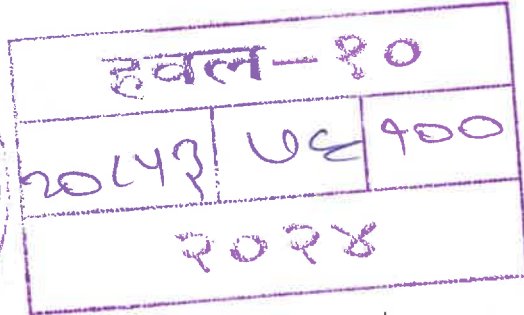 हवल-१०
२०८५३ ७९ १००
२०२४